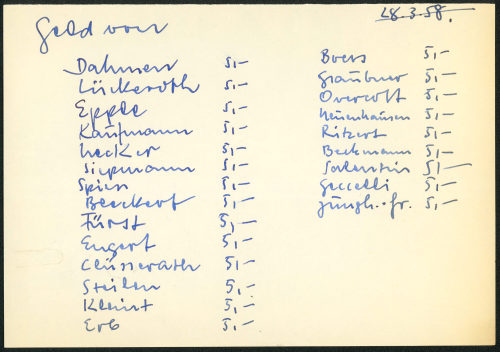 28.3.58.
Geld von
Dahmen 5,-
Lückeroth 5,-
Eppde 5,-
Kaufmann 5,-
Hecker 5,-
Siepmann 5,-
Spies 5,-
Beeckert 5,-
Fürst 5,-
Engert 5,-
Clüsserath 5,-
Steilen 5,-
Kleint 5,-
Erb 5,-
Boers 5,-
Graubner 5,-
Overcott 5,-
Neuenhausen 5,-
Ritzert 5,-
Beckmann 5,-
Salentin 5,-
Geccelli 5,-
Jungh. fr. 5,-